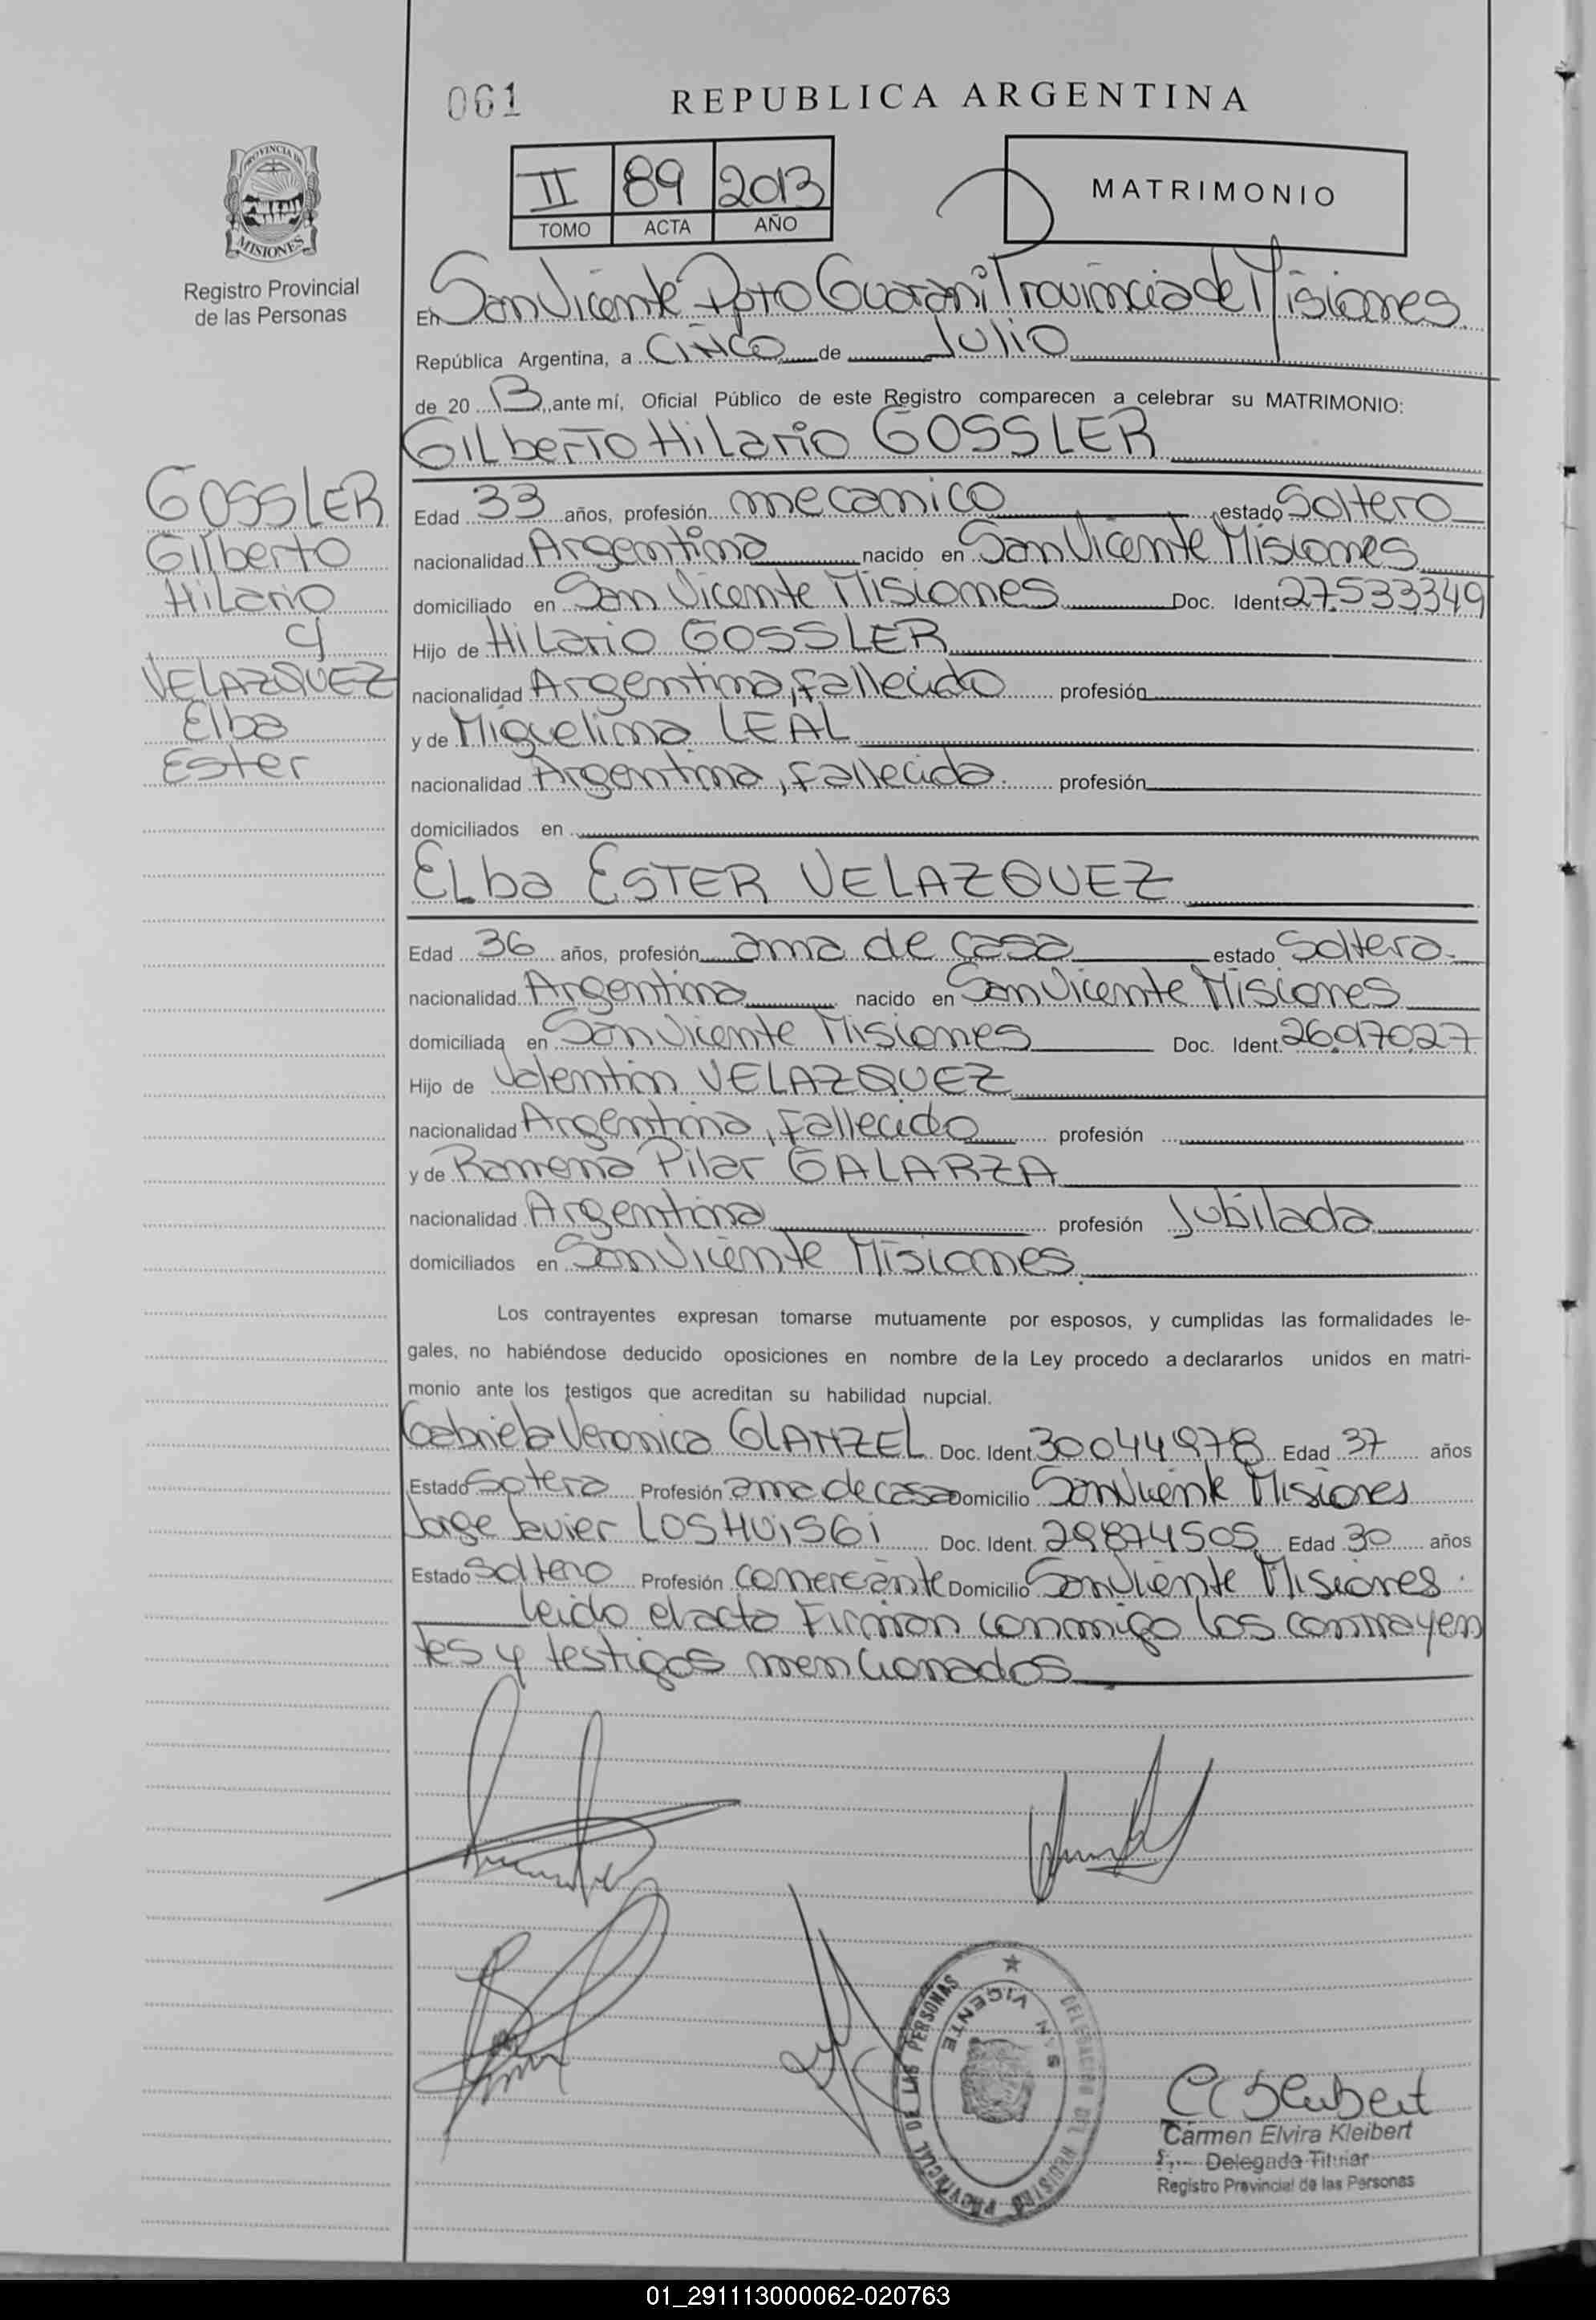 061
REPUBLICA ARGENTINA
PROVINCIA DE
MISIONES
Registro Provincial
de las Personas
II 89 2013
TOMO ACTA AÑO
MATRIMONIO
En San Vicente Dpto Guarani Provincia de Misiones
República Argentina, a Cinco de Julio
de 20 13 ante mí, Oficial Público de este Registro comparecen a celebrar su MATRIMONIO:
Gilberto Hilario GOSSLER
GOSSLER
Gilberto
Hilario
c/
VELAZQUEZ
Elba
Ester
Edad 33 años, profesión mecanico estado Soltero
nacionalidad Argentina nacido en San Vicente Misiones
domiciliado en San Vicente Misiones Doc. Ident 27.533349
Hijo de Hilario GOSSLER
nacionalidad Argentina, fallecido profesión
y de Miguelina LEAL
nacionalidad Argentina, fallecida profesión
domiciliados en
ELba ESTER VELAZQUEZ
Edad 36 años, profesión ama de casa estado Soltera
nacionalidad Argentina nacido en San Vicente Misiones
domiciliada en San Vicente Misiones Doc. Ident. 26.
Hijo de Valentin VELAZQUEZ
nacionalidad Argentina, fallecido profesión
y de Ramona Pilar GALARZA
nacionalidad Argentina profesión Jubilada
domiciliados en San Vicente Misiones
Los contrayentes expresan tomarse mutuamente por esposos, y cumplidas las formalidades le-
gales, no habiéndose deducido oposiciones en nombre de la Ley procedo a declararlos unidos en matri-
monio ante los testigos que acreditan su habilidad nupcial.
Gabriela Veronica GLANZEL Doc. Ident. 30044978 Edad 37 años
Estado Sotera Profesión ama de casa Domicilio San Vicente Misiones
Jorge Javier LOSHUISGi Doc. Ident. 29874505 Edad 30 años
Estado Soltero Profesión comerciante Domicilio San Vicente Misiones
Leido el acta Firman conmigo los contrayen
tes y testigos mencionados
DELEGACION DEL REGISTRO PROVINCIAL DE LAS PERSONAS
SAN VICENTE
Carmen Elvira Kleibert
Delegada Titular
Registro Provincial de las Personas
01_291113000062-020763